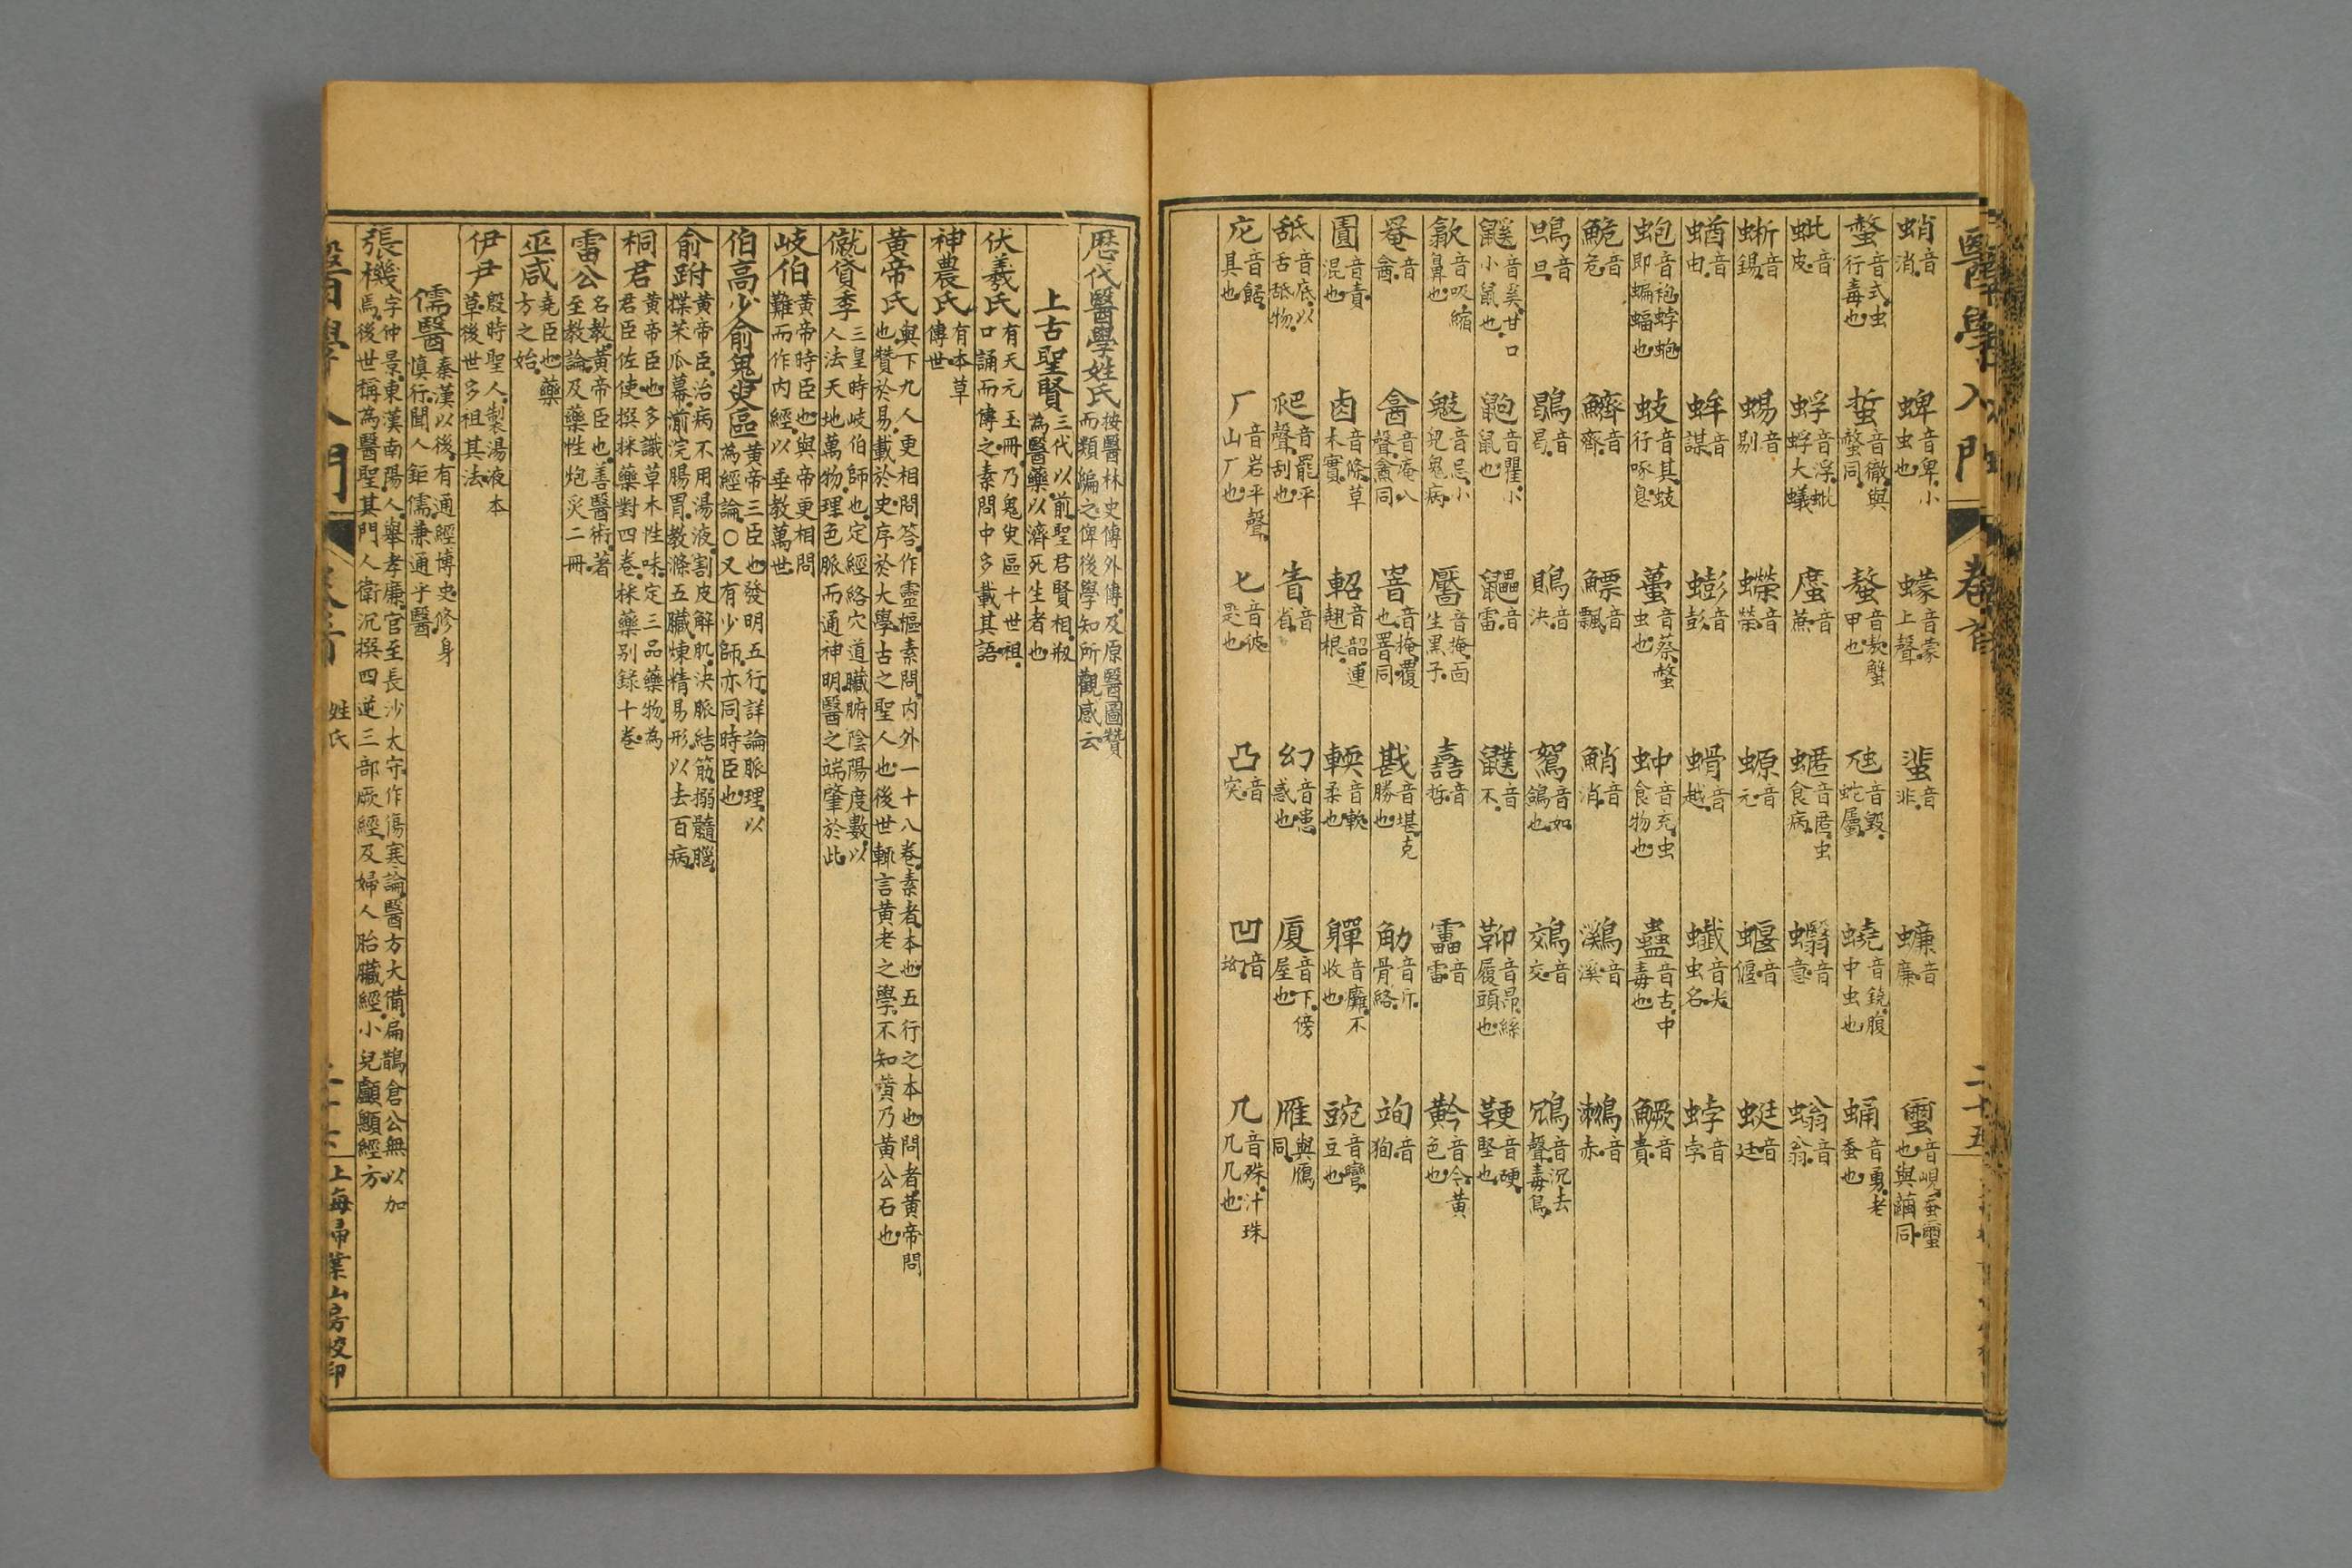 醫學入門 卷首 二十五
蛸音消 蜱音卑小虫也 蠓音蒙上聲 蜚音非 蠊音廉 蠒音峴蚕蠒也與繭同
螫音式虫行毒也 蜇音徹與螫同 螯音敖蟹甲也 虺音毀蛇屬 蟯音饒腹中虫也 蛹音勇老蚕也
蚍音皮 蜉音浮蚍蜉大蟻 䗪音蔗 音匿虫食病 音意 螉音翁
蜥音錫 蜴音剔 蠑音榮 螈音元 蝘音偃 蜓音廷
蝤音由 蛑音謀 蟛音彭 螖音越 音尖虫名 蛑音孛
音袍蜉蚫即蝙蝠也 蚑音其蚑行啄息 蠆音蔡螫虫也 蚛音充虫食物也 蠱音古中毒也 鱖音貴
鮠音危 鱭音齊 鰾音飄 鮹音消 鸂音溪 音赤
音旦 鶡音曷 音決 鴽音如鴿也 鵁音交 鴆音沉去聲毒鳥
鼷音奚甘口小鼠也 音瞿小鼠也 鼺音雷 音不 音昂絲履頭也 鞕音硬堅也
音吸縮鼻也 鬾音忌小兒鬼病 黶音掩面生黑子 嚞音哲 靁音雷 黅音今黃色也
音龕 音庵八聲龕同 音掩覆也罯同 戡音堪克勝也 音斤骨絡 音狥
音責混也 卤音條草木實 軺音韶連翹根 軟音軟柔也 軃音軃不收也 豌音彎豆也
舐音底以舌舐物 爬音罷平聲刮也 眚音省 幻音患惑也 廈音下傍屋也 雁與鴈同
音餁具也 厂音岩平聲山厂也 匕音彼匙也 凸音突 凹音坳 几音殊汁珠几几也
歷代醫學姓氏 按醫林史傳外傳及原醫圖贊而類編之俾後學知所觀感云
上古聖賢 三代以前聖君賢相剏為醫藥以濟死生者也
伏羲氏 有天元玉冊乃鬼臾區十世祖口誦而傳之素問中多載其語
神農氏 有本草傳世
黃帝氏 與下九人更相問答作靈樞素問內外一十八卷素者本也五行之本也問者黃帝問也贊於易載於史序於大學古之聖人也後世輒言黃老之學不知黃乃黃公石也
僦貸季 三皇時岐伯師也定經絡穴道臟腑陰陽度數以人法天地萬物理色脈而通神明醫之端肇於此
岐伯 黃帝時臣也與帝更相問難而作內經以垂教萬世
伯高少俞鬼臾區 黃帝三臣也發明五行詳論脈理以為經論〇又有少師亦同時臣也
俞跗 黃帝臣治病不用湯液割皮解肌決脈結筋搦髓腦揲荒爪幕湔浣腸胃教滌五臟煉精易形以去百病
桐君 黃帝臣也多識草木性味定三品藥物為君臣佐使撰採藥對四卷採藥別錄十卷
雷公 名斆黃帝臣也善醫術著至教論及藥性炮炙二冊
巫咸 堯臣也藥方之始
伊尹 殷時聖人製湯液本草後世多祖其法
儒醫 秦漢以後有通經博史修身慎行聞人鉅儒兼通乎醫
張機 字仲景東漢南陽人舉孝廉官至長沙太守作傷寒論醫方大備扁鵲倉公無以加焉後世稱為醫聖其門人衛沉撰四逆三部厥經及婦人胎臟經小兒顱顖經方
醫學入門 卷首 姓氏 上海掃葉山房校印